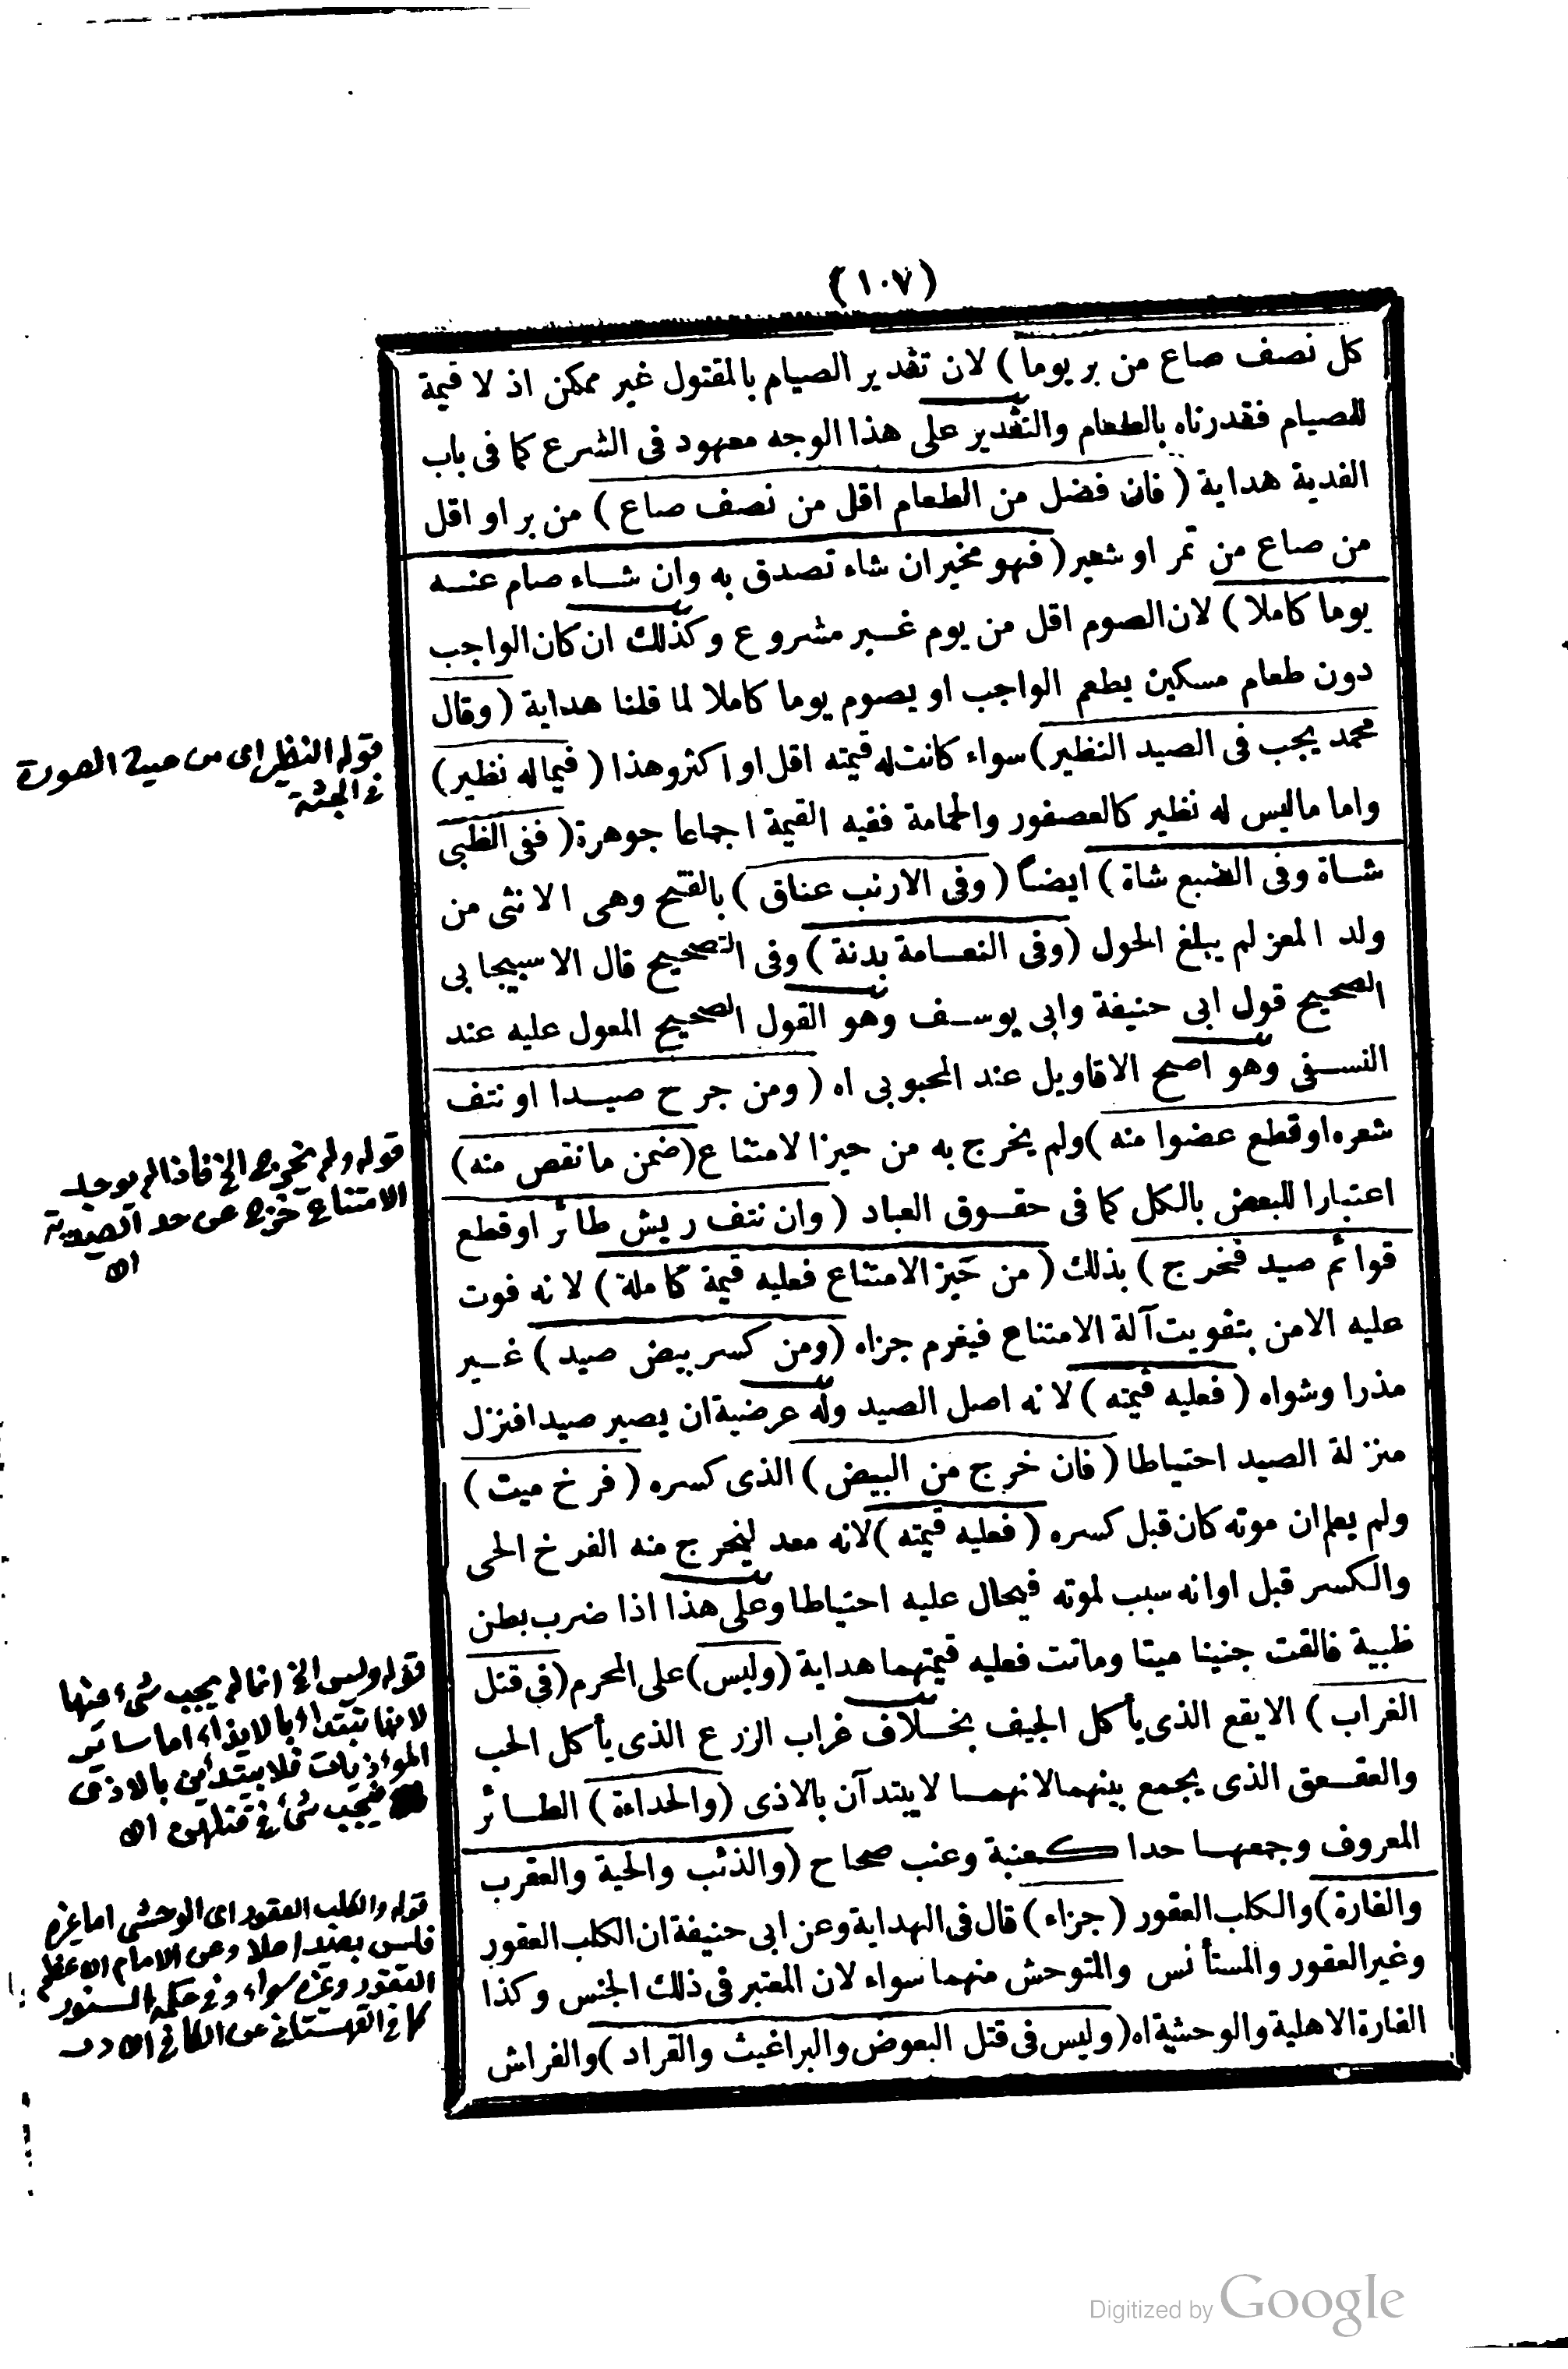 (١٠٧)
كل نصف صاع من بر يوما) لان تقدير الصيام بالمقتول غير ممكن اذ لا قيمة
للصيام فقدرناه بالطعام والتقدير على هذا الوجه معهود فى الشرع كما فى باب
الفدية هداية (فان فضل من الطعام اقل من نصف صاع) من بر او اقل
من صاع من تمر او شعير (فهو مخير ان شاء تصدق به وان شاء صام عنه
يوما كاملا) لان الصوم اقل من يوم غير مشروع وكذلك ان كان الواجب
دون طعام مسكين يطعم الواجب او يصوم يوما كاملا لما قلنا هداية (وقال
محمد يجب فى الصيد النظير) سواء كانت له قيمته اقل او اكثر وهذا (فيما له نظير)
واما ماليس له نظير كالعصفور والحمامة ففيه القيمة اجماعا جوهرة (ففى الظبى
شاة وفى الضبع شاة) ايضا (وفى الارنب عناق) بالفتح وهى الانثى من
ولد المعز لم يبلغ الحول (وفى النعامة بدنة) وفى التصحيح قال الاسبيجابى
الصحيح قول ابى حنيفة وابى يوسف وهو القول الصحيح المعول عليه عند
النسفى وهو اصح الاقاويل عند المحبوبى اه (ومن جرح صيدا او نتف
شعره او قطع عضوا منه) ولم يخرج به من حيز الامتناع (ضمن ما نقص منه)
اعتبارا للبعض بالكل كما فى حقوق العباد (وان نتف ريش طائر او قطع
قوائم صيد فخرج) بذلك (من حيز الامتناع فعليه قيمة كاملة) لانه فوت
عليه الامن بتفويت آلة الامتناع فيغرم جزاه (ومن كسر بيض صيد) غير
مذرا وشواه (فعليه قيمته) لانه اصل الصيد وله عرضية ان يصير صيدا فنزل
منزلة الصيد احتياطا (فان خرج من البيض) الذى كسره (فرخ ميت)
ولم يعلم ان موته كان قبل كسره (فعليه قيمته) لانه معد ليخرج منه الفرخ الحى
والكسر قبل اوانه سبب لموته فيحال عليه احتياطا وعلى هذا اذا ضرب بطن
ظبية فالقت جنينا ميتا وماتت فعليه قيمتهما هداية (وليس) على المحرم (فى قتل
الغراب) الابقع الذى يأكل الجيف بخلاف غراب الزرع الذى يأكل الحب
والعقعق الذى يجمع بينهما لانهما لا يبتدآن بالاذى (والحداءة) الطائر
المعروف وجمعها حدا كعنبة وعنب صحاح (والذئب والحية والعقرب
والفارة) والكلب العقور (جزاء) قال فى الهداية وعن ابى حنيفة ان الكلب العقور
وغير العقور والمستأنس والمتوحش منهما سواء لان المعتبر فى ذلك الجنس وكذا
الفارة الاهلية والوحشية اه (وليس فى قتل البعوض والبراغيث والقراد) والفراش
قوله النظير اى من حيث الصورة
فى الجثة
قوله ولم يخرج الخ فاذا لم يوجد
الامتناع خرج عن حد الصيدية
اه
قوله وليس الخ انما لم يجب شىء فيها
لانها تبتداء بالايذاء اما سائر
الموءذيات فلا يبتدأن بالاذى
فيجب شئ فى قتلهن اه
قوله والكلب العقور اى الوحشى اما غيره
فليس بصيد اصلا وعن الامام الاعظم
العقور وغيره سواء وفى حكمه السنور
كما فى القهستانى عن الكافى اه
Digitized by Google